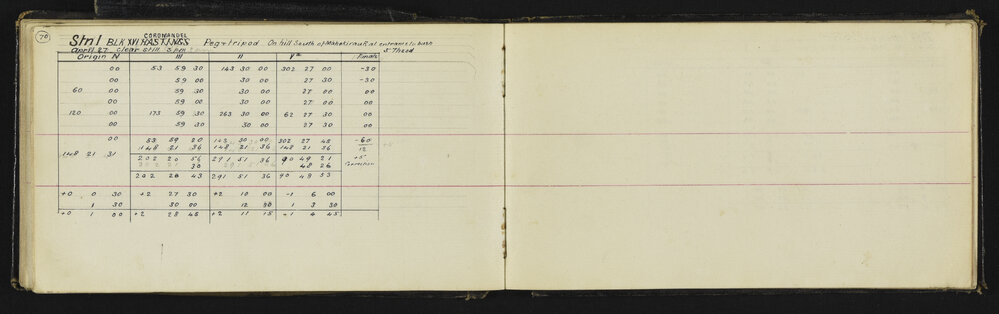 70
COROMANDEL
Stn I BLK XVI HASTINGS Peg & tripod On hill South of Mahakirau R at entrance to bush
April 27 Clear Still 3 p.m. 5" Theod
Origin N III II V Finals
00 53 59 30 143 30 00 302 27 00 -30
00 59 00 30 00 27 30 -30
60 00 59 30 30 00 27 00 00
00 59 00 30 00 27 00 00
120 00 173 59 30 263 30 00 62 27 30 00
00 59 30 30 00 27 30 00
00 53 59 20 143 30 00 302 27 45 -60
148 21 36 148 21 36 148 21 36 12
148 21 31 202 20 56 291 51 36 90 49 21 +5
30 48 26 Correction
202 20 43 291 51 36 90 48 53
+0 0 30 +2 27 30 +2 10 00 -1 6 00
1 30 30 00 12 30 1 3 30
+0 1 00 +2 28 45 +2 11 15 +1 4 45